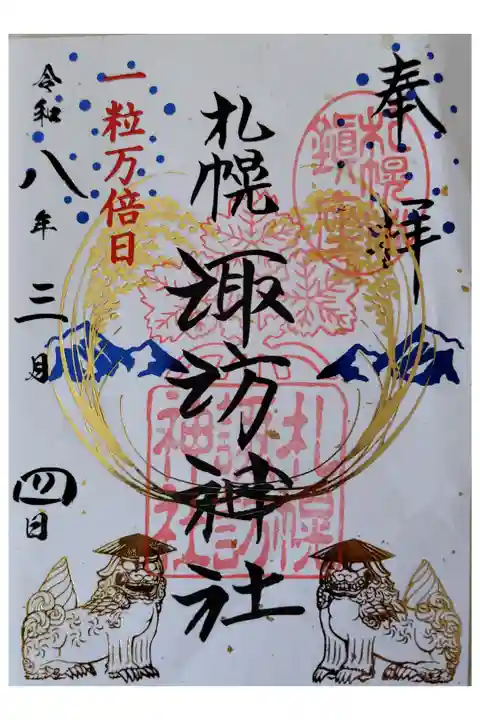 奉拝
札幌鎮座
札幌諏訪神社
札幌
諏訪
神社
一粒万倍日
令和八年三月四日